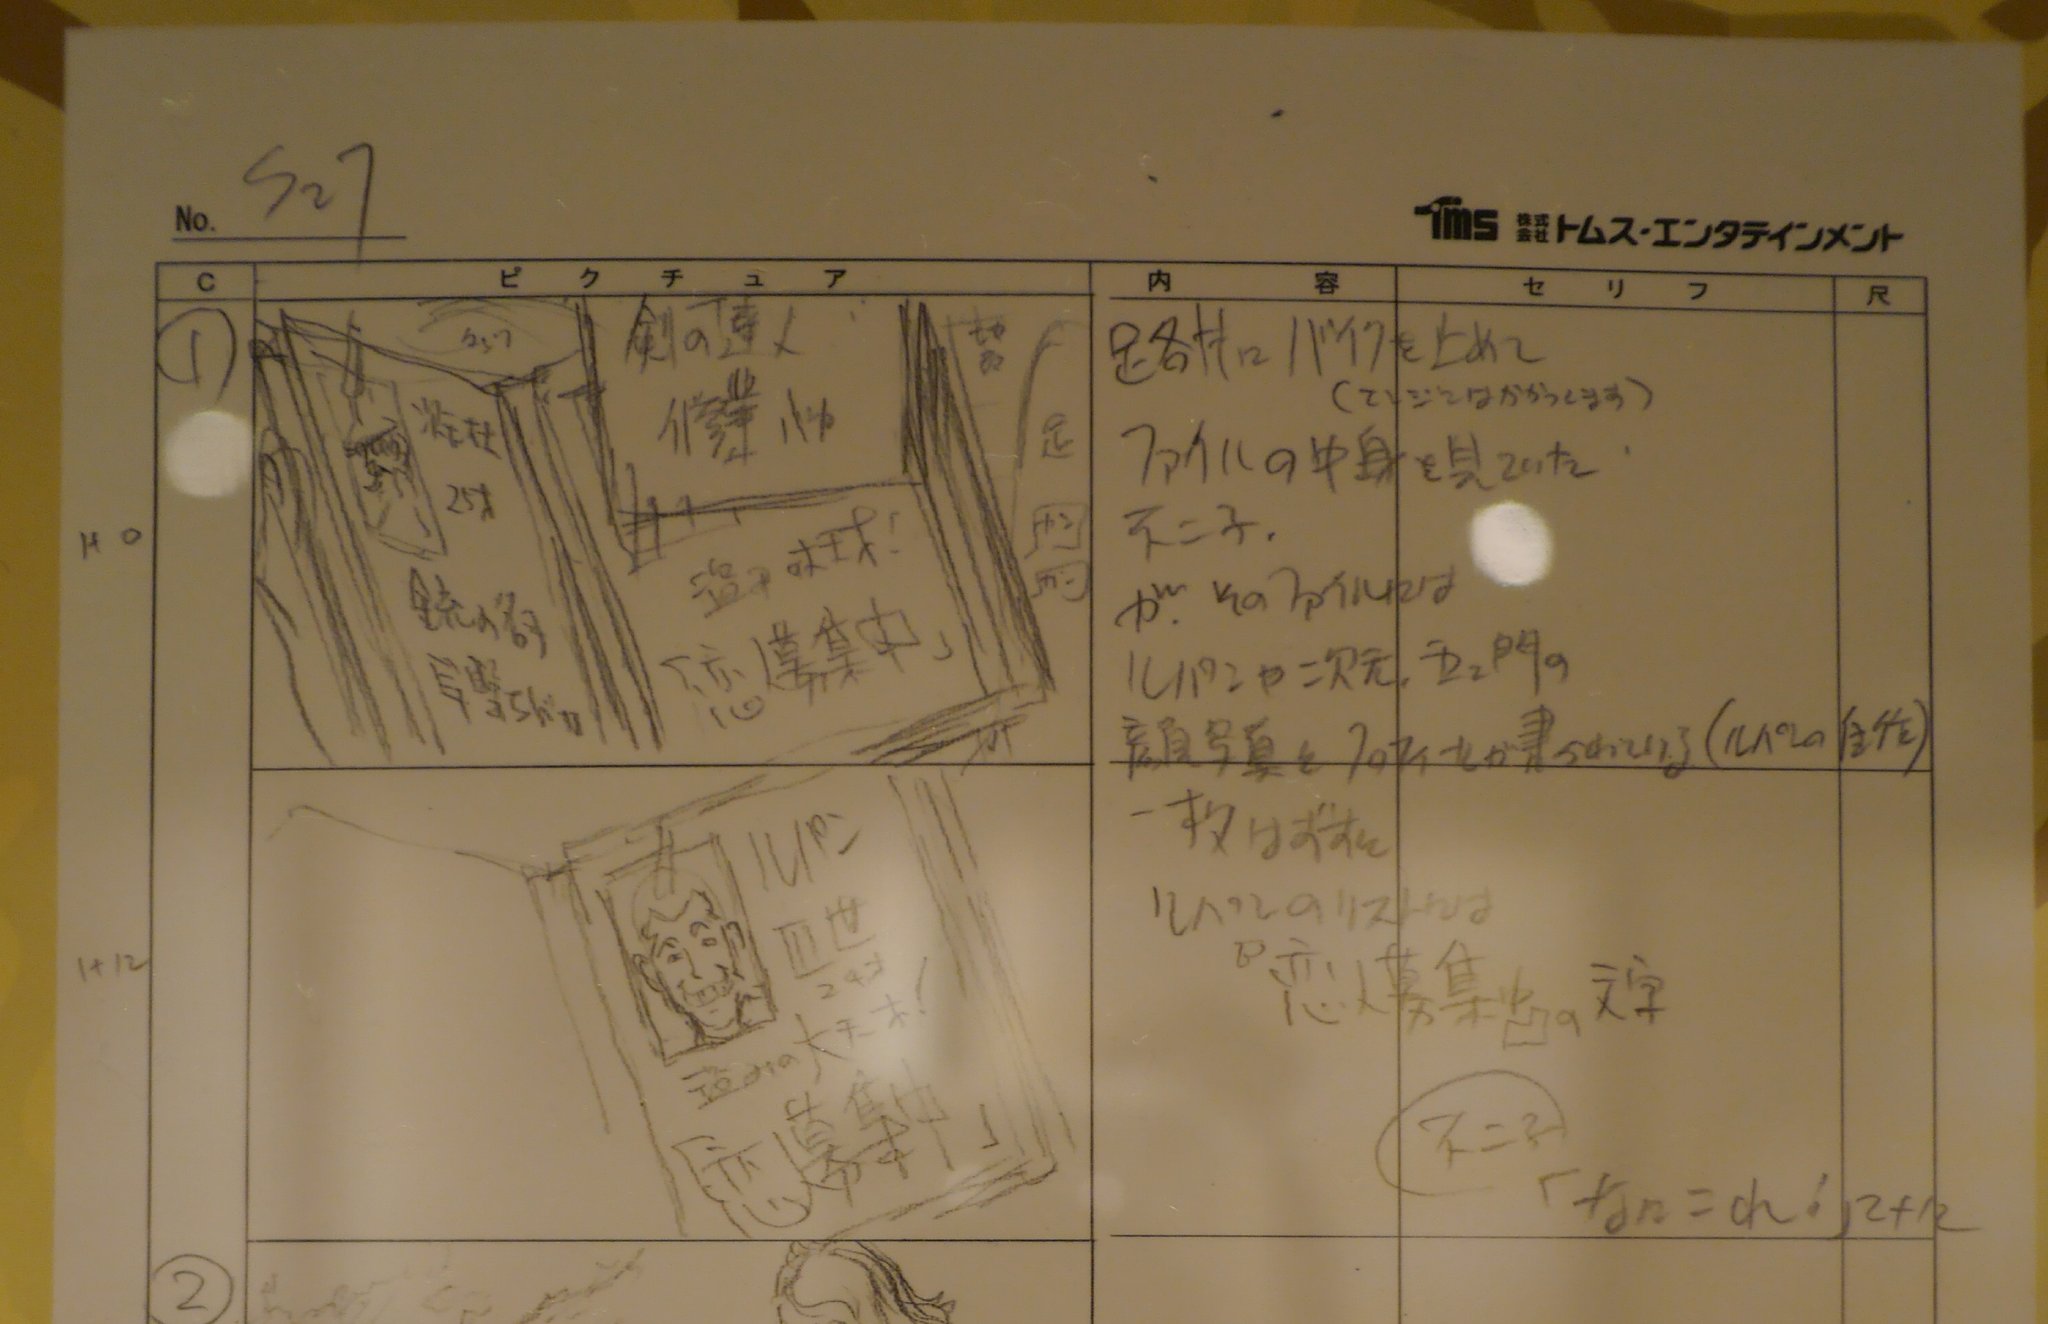 No. S27
TMS 株式会社 トムス・エンタテインメント
C ピクチュア 内容 セリフ 尺
①
剣の達人
修業
25才
銃の名手
盗みの天才!
「恋人募集中」
バイクを止めて
(エンジンはかかってます)
ファイルの中身を見ていた
不二子.
が、そのファイルには
ルパンや二次元、五ェ門の
顔写真とプロフィールが書かれている(ルパンの自作)
一枚はずすと
ルパンのリストには
『恋人募集中』の文字
1+12
ルパン
三世
盗みの大天才!
「恋人募集中」
不二子
「なにこれ!」2+12
②